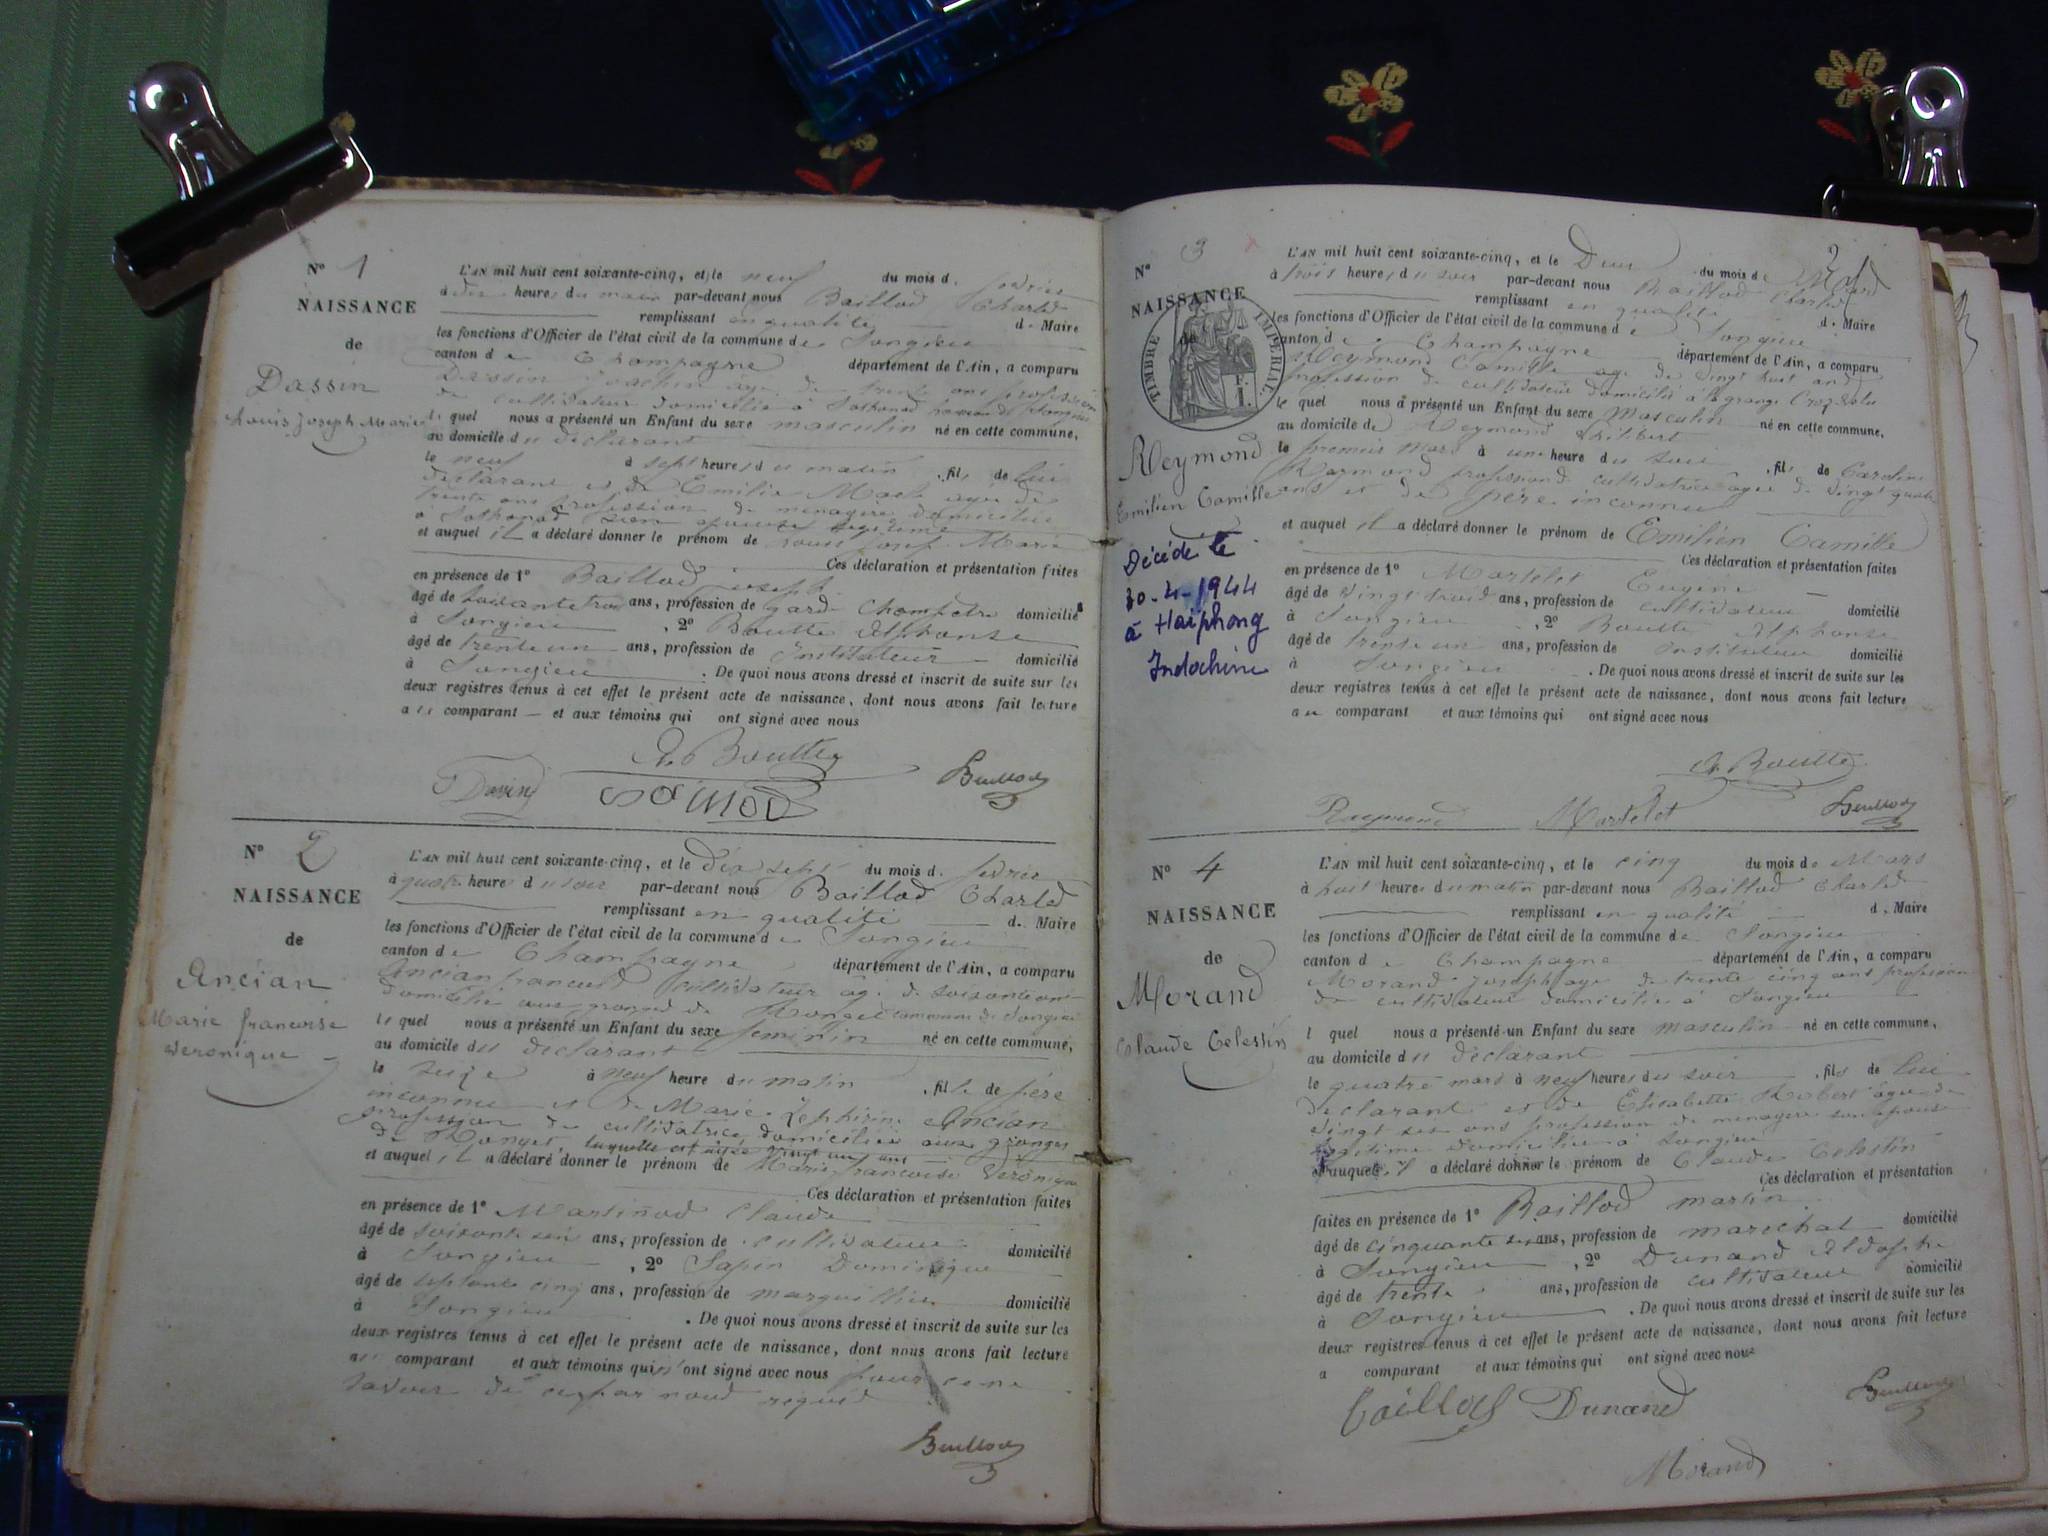 N° 1
NAISSANCE
de
Dassin
Louis Joseph Marie
L'AN mil huit cent soixante-cinq, et le neuf du mois d. fevrier
à dix heures du matin par-devant nous Baillod Charles
remplissant en qualité d. Maire
les fonctions d'Officier de l'état civil de la commune de Songieu
canton de Champagne département de l'Ain, a comparu
Dassin Joachim agé de trente ans profession
de cultivateur domicilié à Sothonod
le quel nous a présenté un Enfant du sexe masculin né en cette commune,
au domicile du déclarant
le neuf à sept heures du matin , fils de lui
déclarant et de Emilie agée de
trente ans profession de menagère domiciliée
à Sothonod son epouse legitime
et auquel il a déclaré donner le prénom de Louis Josef Marie
Ces déclaration et présentation faites
en présence de 1° Baillod Joseph
âgé de soixante trois ans, profession de garde Champetre domicilié
à Songieu , 2° Boutte Alphonse
âgé de trente un ans, profession de Instituteur domicilié
à Songieu . De quoi nous avons dressé et inscrit de suite sur les
deux registres tenus à cet effet le présent acte de naissance, dont nous avons fait lecture
au comparant et aux témoins qui ont signé avec nous
A. Boutte
Baillod
N° 2
NAISSANCE
de
Ancian
Marie francoise
veronique
L'AN mil huit cent soixante-cinq, et le dix sept du mois d. fevrier
à quatre heures du soir par-devant nous Baillod Charles
remplissant en qualité d. Maire
les fonctions d'Officier de l'état civil de la commune de Songieu
canton de Champagne département de l'Ain, a comparu
Ancian francois cultivateur agé de soixante ans
domicilié aux granges de Ronget commune de Songieu
le quel nous a présenté un Enfant du sexe feminin né en cette commune,
au domicile du déclarant
le seize à neuf heure du matin , fille de père
inconnu et de Marie Zephirine Ancian
profession de cultivatrice domiciliée aux granges
de Ronget, laquelle est agée vingt un ans
et auquel il a déclaré donner le prénom de Marie francoise Veronique
Ces déclaration et présentation faites
en présence de 1° Martinod Claude
âgé de soixante six ans, profession de cultivateur domicilié
à Songieu , 2° Sapin Dominique
âgé de septante cinq ans, profession de marguillier domicilié
à Songieu . De quoi nous avons dressé et inscrit de suite sur les
deux registres tenus à cet effet le présent acte de naissance, dont nous avons fait lecture
au comparant et aux témoins qui n'ont signé avec nous pour ne
savoir de ce par nous requis
Baillod
N° 3
NAISSANCE
de
TIMBRE IMPERIAL
Reymond
Emilien Camille
Décédé le
30-4-1944
à Haïphong
Indochine
L'AN mil huit cent soixante-cinq, et le Deux du mois de Mars
à trois heures du soir par-devant nous Baillod Charles
remplissant en qualité d. Maire
les fonctions d'Officier de l'état civil de la commune de Songieu
canton de Champagne département de l'Ain, a comparu
Reymond Camille agé de vingt huit ans
profession de cultivateur domicilié à la grange
le quel nous a présenté un Enfant du sexe masculin né en cette commune,
au domicile de Reymond Philibert
le premier Mars à une heure du soir , fils de Caroline
Raymond profession cultivatrice agée de vingt quatre
ans et de père inconnu
et auquel il a déclaré donner le prénom de Emilien Camille
Ces déclaration et présentation faites
en présence de 1° Martelet Eugène
âgé de vingt trois ans, profession de cultivateur domicilié
à Songieu , 2° Boutte Alphonse
âgé de trente un ans, profession de instituteur domicilié
à Songieu . De quoi nous avons dressé et inscrit de suite sur les
deux registres tenus à cet effet le présent acte de naissance, dont nous avons fait lecture
au comparant et aux témoins qui ont signé avec nous
A. Boutte
Reymond Martelet Baillod
N° 4
NAISSANCE
de
Morand
Claude Celestin
L'AN mil huit cent soixante-cinq, et le cinq du mois de Mars
à huit heures du matin par-devant nous Baillod Charles
remplissant en qualité d. Maire
les fonctions d'Officier de l'état civil de la commune de Songieu
canton de Champagne département de l'Ain, a comparu
Morand Joseph age de trente cinq ans profession
de cultivateur domicilié à Songieu
l quel nous a présenté un Enfant du sexe masculin né en cette commune,
au domicile du déclarant
le quatre mars à neuf heures du soir , fils de lui
declarant et de Elisabette Robert agée de
vingt six ans profession de menagère son epouse
legitime domiciliée à Songieu
et auquel il a déclaré donner le prénom de Claude Celestin
Ces déclaration et présentation
faites en présence de 1° Baillod martin
âgé de cinquante six ans, profession de marechal domicilié
à Songieu , 2° Dunand Aldophe
âgé de trente ans, profession de cultivateur domicilié
à Songieu . De quoi nous avons dressé et inscrit de suite sur les
deux registres tenus à cet effet le présent acte de naissance, dont nous avons fait lecture
a comparant et aux témoins qui ont signé avec nous
Baillod Dunand Baillod
Morand